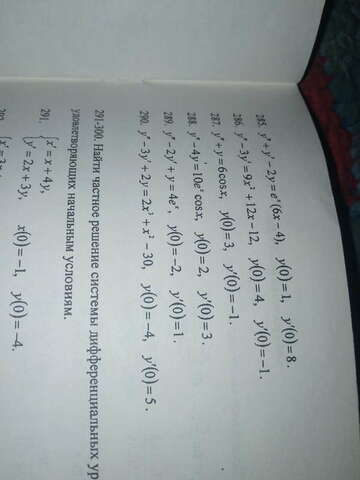 285. y″ + y′ − 2y = eˣ(6x − 4), y(0) = 1, y′(0) = 8.
286. y″ − 3y′ = 9x² + 12x − 12, y(0) = 4, y′(0) = −1.
287. y″ + y = 6cosx, y(0) = 3, y′(0) = −1.
288. y″ − 4y′ = 10eˣcosx, y(0) = 2, y′(0) = 3.
289. y″ − 2y′ + y = 4eˣ, y(0) = −2, y′(0) = 1.
290. y″ − 3y′ + 2y = 2x³ + x² − 30, y(0) = −4, y′(0) = 5.
291-300. Найти частное решение системы дифференциальных ур
удовлетворяющих начальным условиям.
291. { x′ = x + 4y,
y′ = 2x + 3y, x(0) = −1, y(0) = −4.